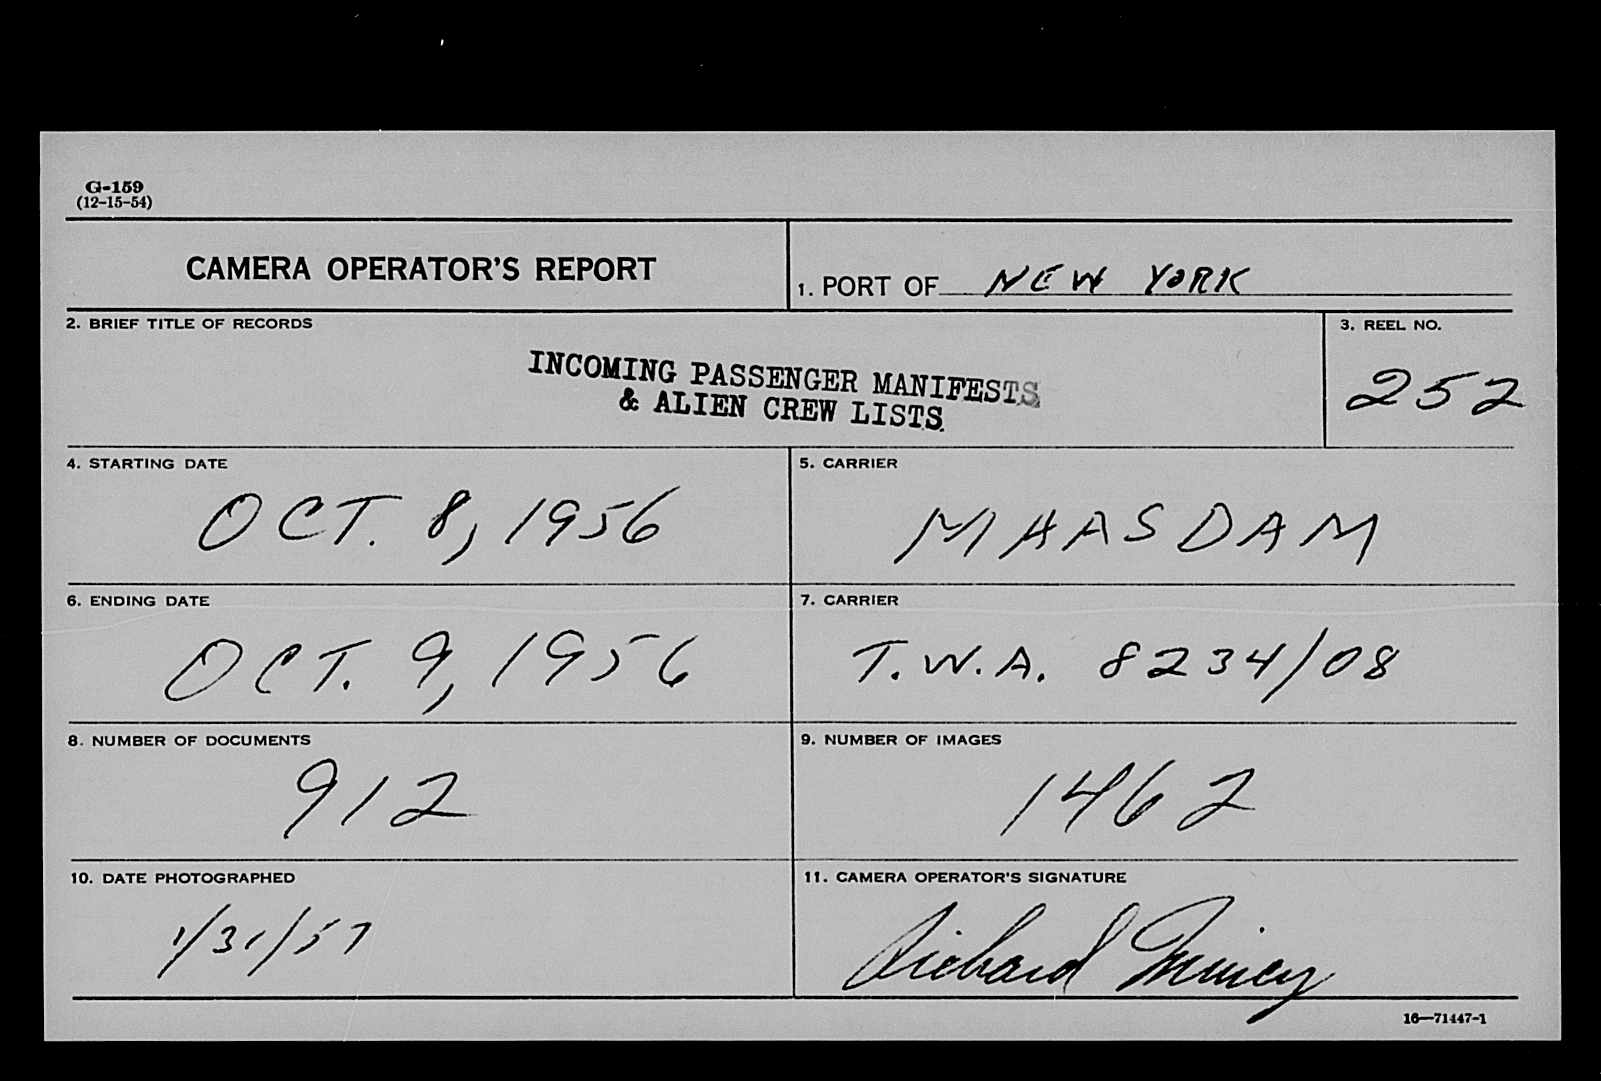 G-159
(12-15-54)
CAMERA OPERATOR'S REPORT
1. PORT OF NEW YORK
2. BRIEF TITLE OF RECORDS
INCOMING PASSENGER MANIFESTS
& ALIEN CREW LISTS.
3. REEL NO.
252
4. STARTING DATE
OCT. 8, 1956
5. CARRIER
MAASDAM
6. ENDING DATE
OCT. 9, 1956
7. CARRIER
T.W.A. 8234/08
8. NUMBER OF DOCUMENTS
912
9. NUMBER OF IMAGES
1462
10. DATE PHOTOGRAPHED
1/31/57
11. CAMERA OPERATOR'S SIGNATURE
Richard
16—71447-1